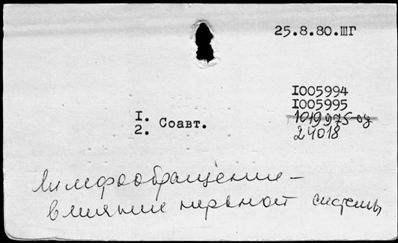 25.8.80.ШГ
I005994
I005995
1019975-оз
24018
I.
2. Соавт.
Лимфообращение –
влияние нервной системы